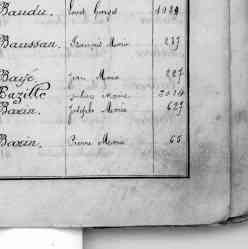 Baudu. Louis Georges
Baussan. François Marie 237
Bayé Jean Marie 227
Bazille Julien Marie
Bazin. Joseph Marie 627
Bazin. Pierre Marie 65